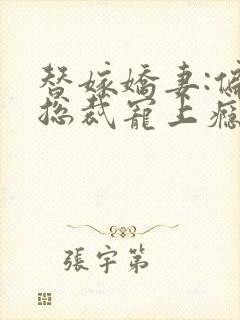 替嫁嬌妻:偏
总裁寵上癮
張宇第